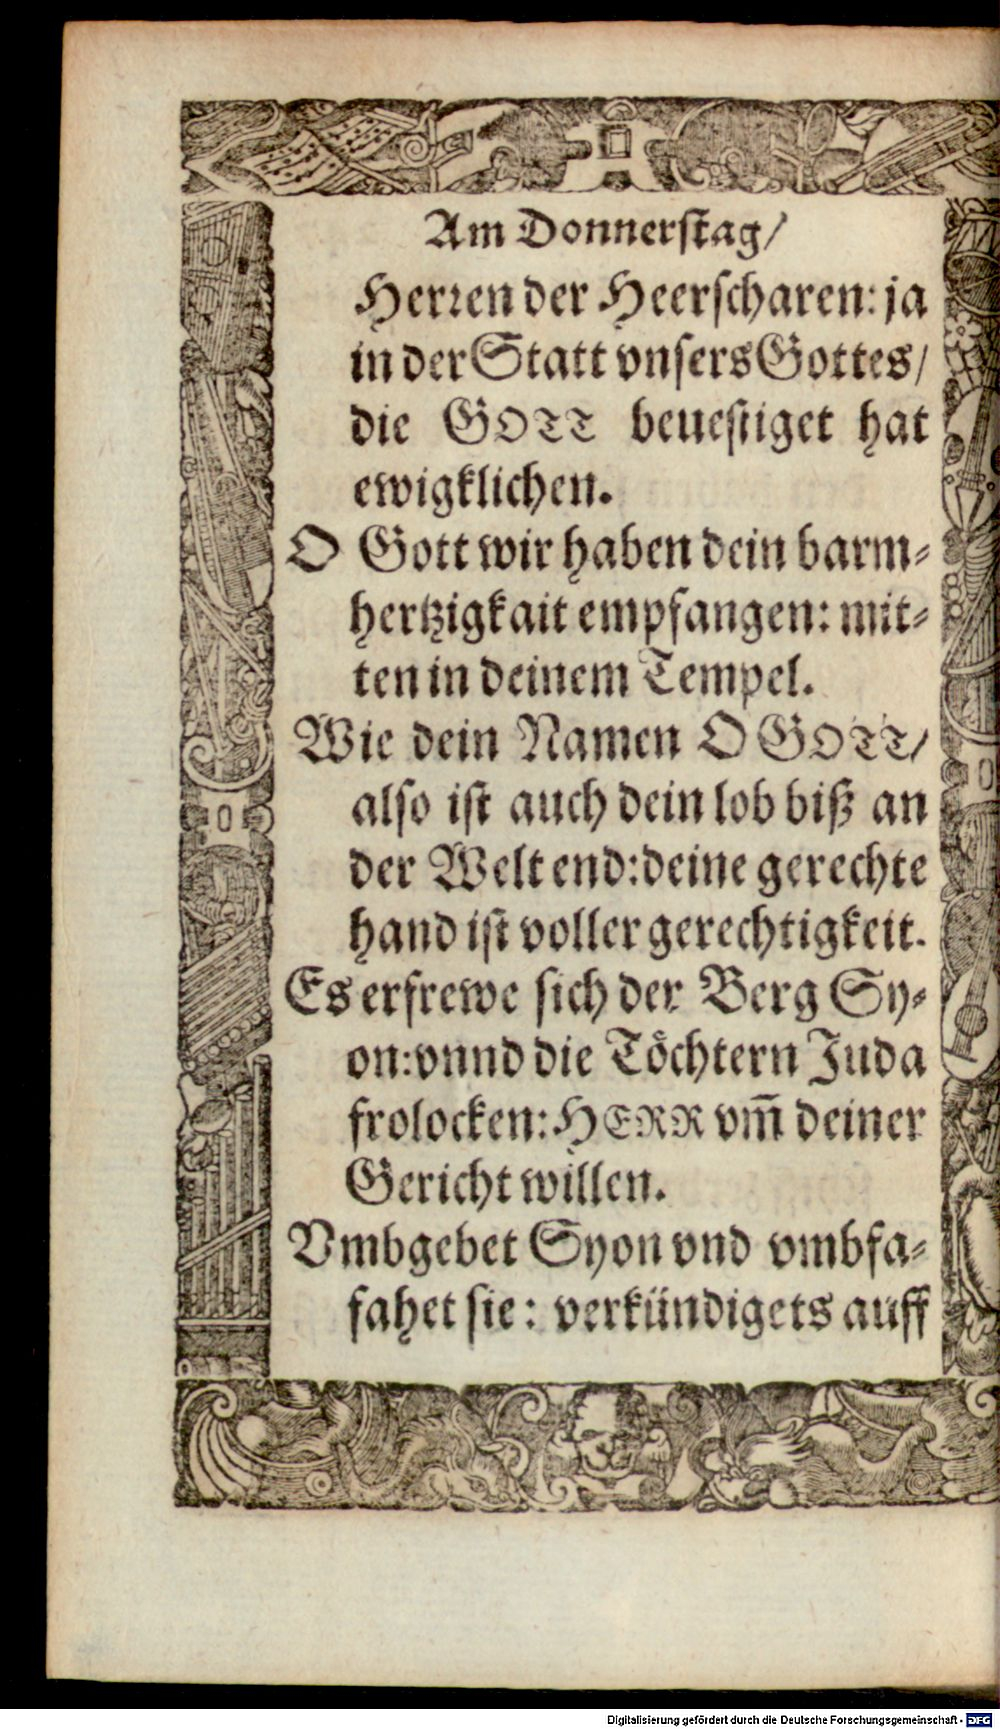 Am Donnerstag/
Herꝛen der Heerscharen: ja
in der Statt vnsers Gottes/
die GOTT beuestiget hat
ewigklichen.
O Gott wir haben dein barm⸗
hertzigkait empfangen: mit⸗
ten in deinem Tempel.
Wie dein Namen O GOTT/
also ist auch dein lob biß an
der Welt end: deine gerechte
hand ist voller gerechtigkeit.
Es erfrewe sich der Berg Sy⸗
on: vnnd die Töchtern Juda
frolocken: HERR vm̄ deiner
Gericht willen.
Vmbgebet Syon vnd vmbfa⸗
fahet sie: verkündigets auff
Digitalisierung gefördert durch die Deutsche Forschungsgemeinschaft - DFG